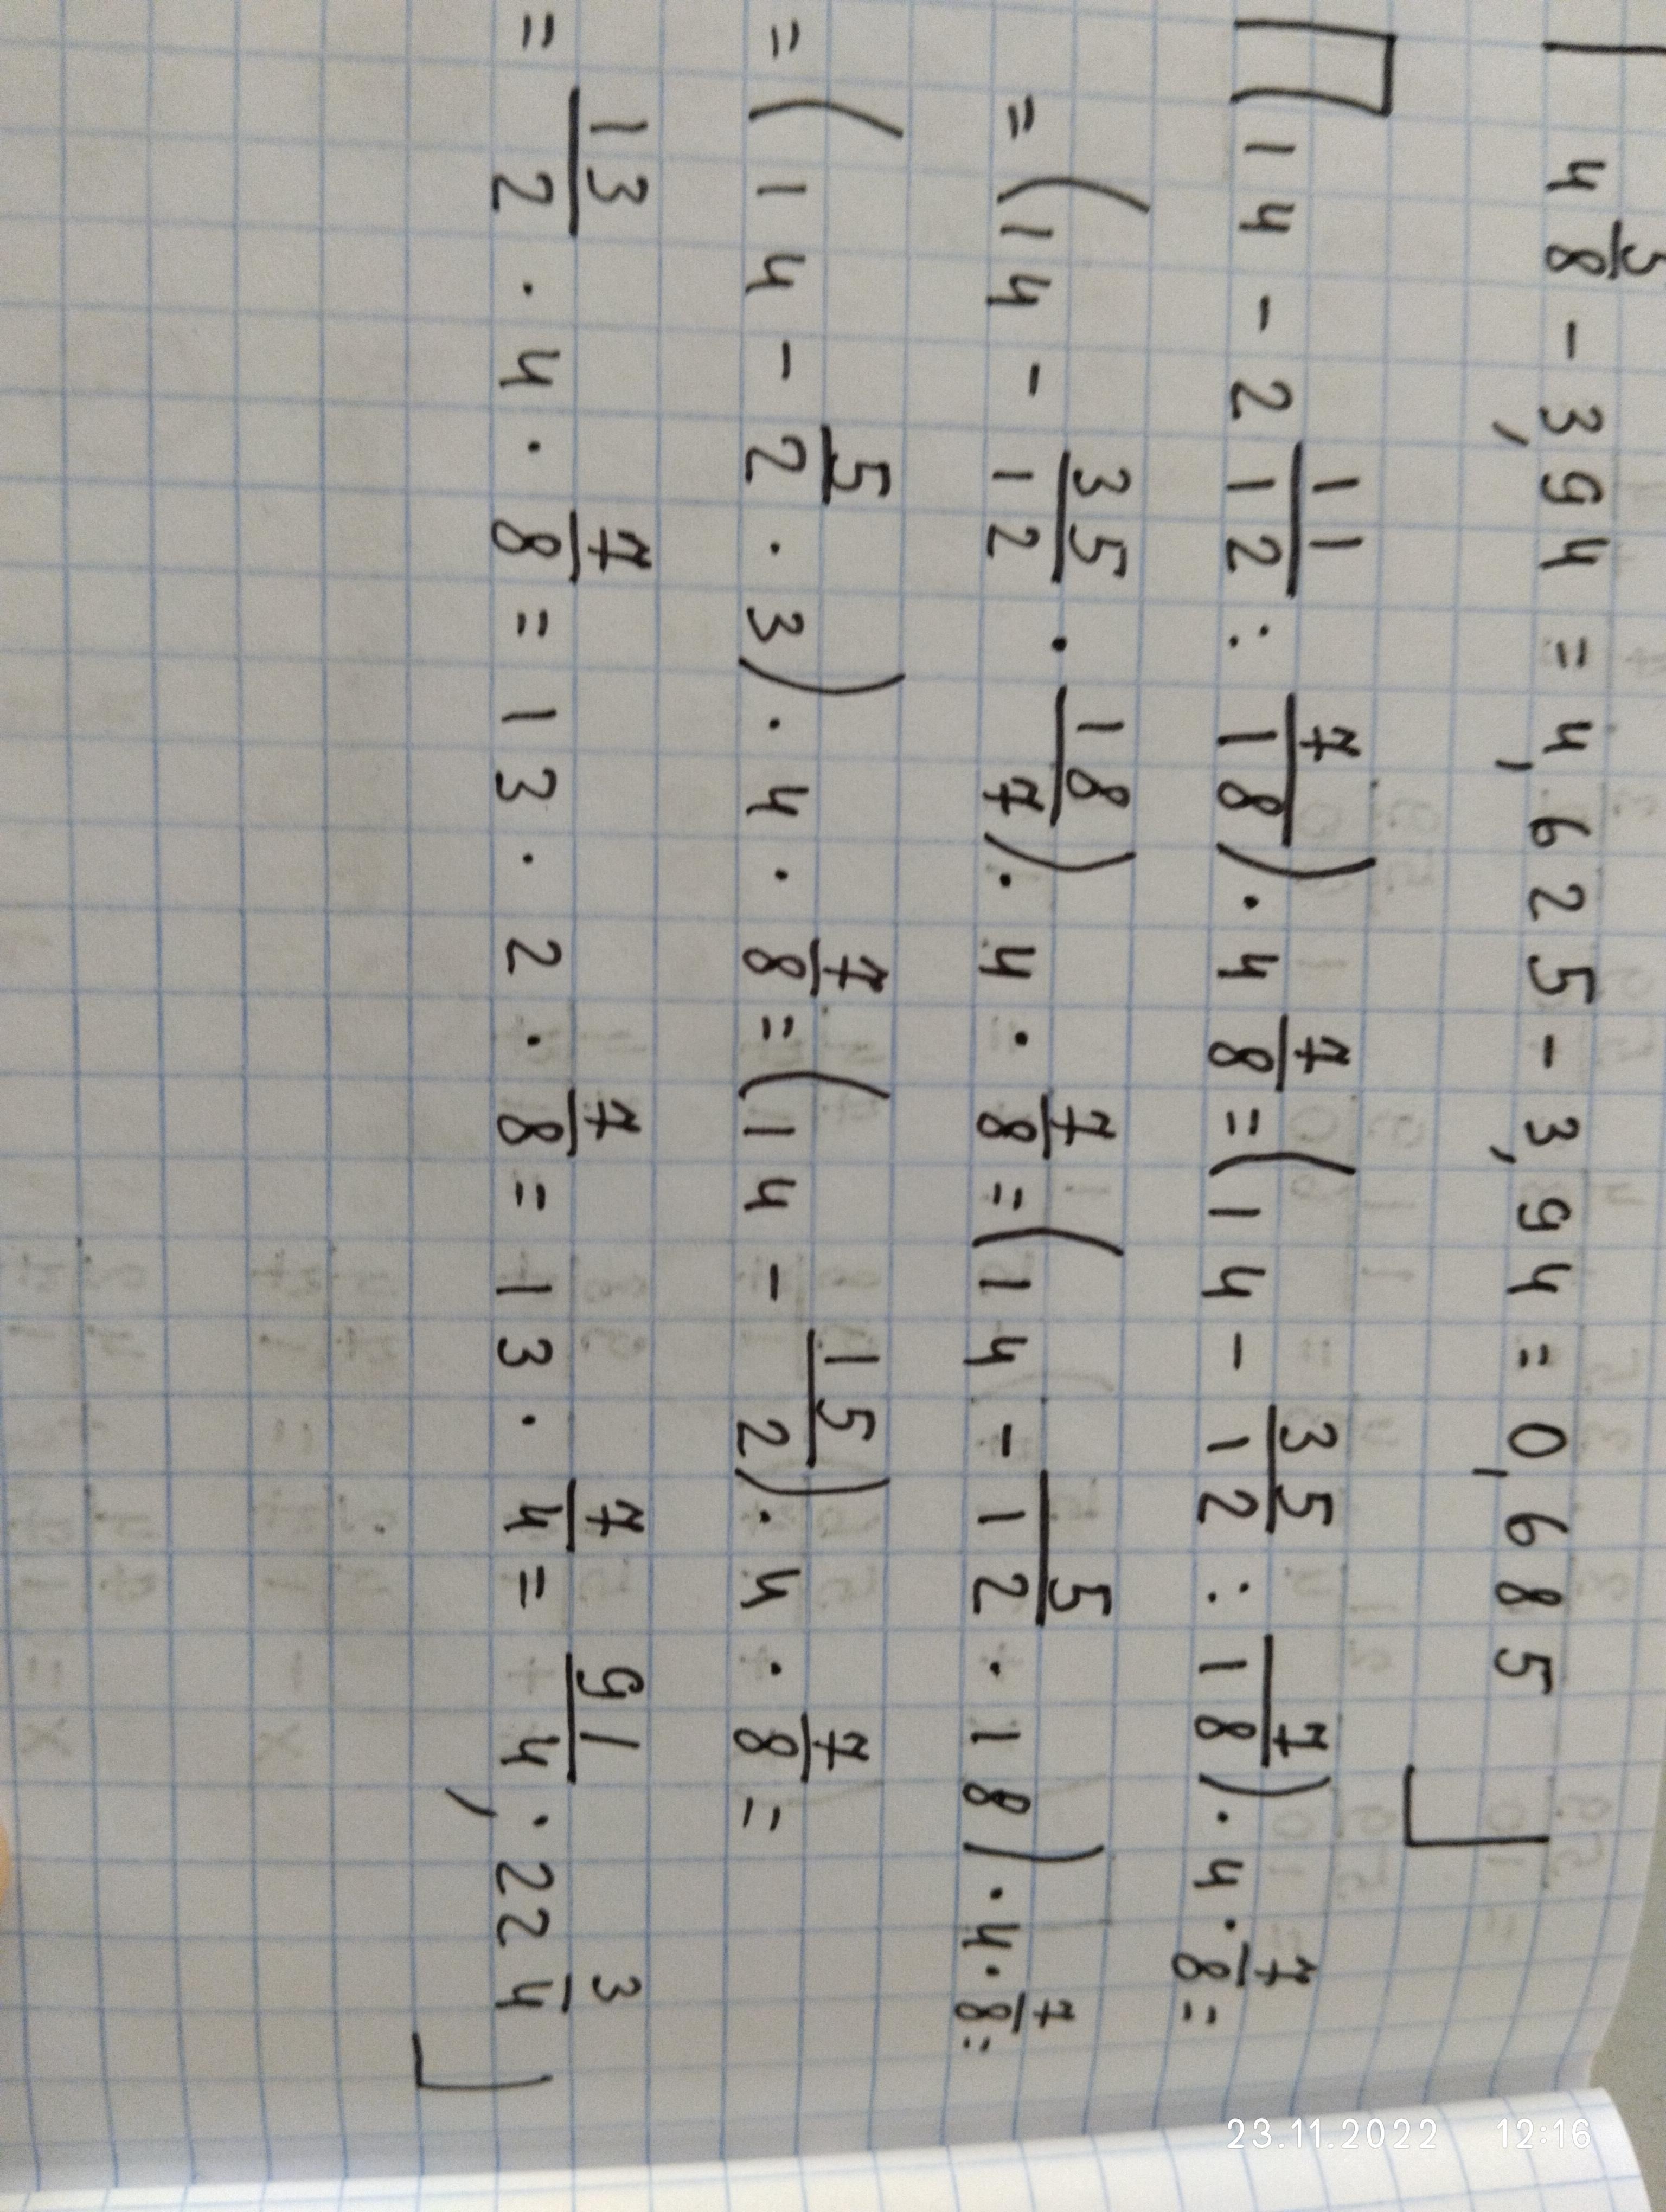 [4 5/8 - 3,94 = 4,625 - 3,94 = 0,685]
[(14 - 2 11/12 : 7/18) · 4 7/8 = (14 - 35/12 : 7/18) · 4 · 7/8 =
= (14 - 35/12 · 18/7) · 4 · 7/8 = (14 - 5/12 · 18) · 4 · 7/8 =
= (14 - 5/2 · 3) · 4 · 7/8 = (14 - 15/2) · 4 · 7/8 =
= 13/2 · 4 · 7/8 = 13 · 2 · 7/8 = 13 · 7/4 = 91/4; 22 3/4]
23.11.2022 12:16